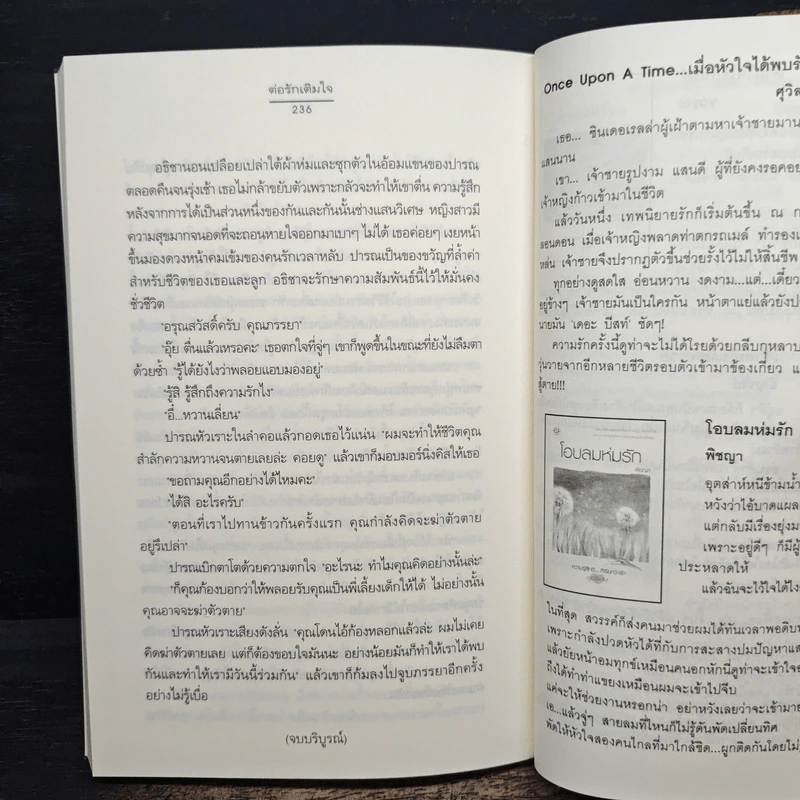 ต่อรักเติมใจ
236
อธิชานอนเปลือยเปล่าใต้ผ้าห่มและซุกตัวในอ้อมแขนของปารณ
ตลอดคืนจนรุ่งเช้า เธอไม่กล้าขยับตัวเพราะกลัวจะทำให้เขาตื่น ความรู้สึก
หลังจากการได้เป็นส่วนหนึ่งของกันและกันนั้นช่างแสนวิเศษ หญิงสาวมี
ความสุขมากจนอดที่จะถอนหายใจออกมาเบาๆ ไม่ได้ เธอค่อยๆ เงยหน้า
ขึ้นมองดวงหน้าคมเข้มของคนรักเวลาหลับ ปารณเป็นของขวัญที่ล้ำค่า
สำหรับชีวิตของเธอและลูก อธิชาจะรักษาความสัมพันธ์นี้ไว้ให้มั่นคง
ชั่วชีวิต
"อรุณสวัสดิ์ครับ คุณภรรยา"
"อุ๊ย ตื่นแล้วเหรอคะ" เธอตกใจที่จู่ๆ เขาก็พูดขึ้นในขณะที่ยังไม่ลืมตา
ด้วยซ้ำ "รู้ได้ยังไงว่าพลอยแอบมองอยู่"
"รู้สิ รู้สึกถึงความรักไง"
"อี๋...หวานเลี่ยน"
ปารณหัวเราะในลำคอแล้วกอดเธอไว้แน่น "ผมจะทำให้ชีวิตคุณ
สำลักความหวานจนตายเลยล่ะ คอยดู" แล้วเขาก็มอบมอร์นิ่งคิสให้เธอ
"ขอถามคุณอีกอย่างได้ไหมคะ"
"ได้สิ อะไรครับ"
"ตอนที่เราไปทานข้าวกันครั้งแรก คุณกำลังคิดจะฆ่าตัวตาย
อยู่รึเปล่า"
ปารณเบิกตาโตด้วยความตกใจ "อะไรนะ ทำไมคุณคิดอย่างนั้นล่ะ"
"ก็คุณก้องบอกว่าให้พลอยรับคุณเป็นพี่เลี้ยงเด็กให้ได้ ไม่อย่างนั้น
คุณอาจจะฆ่าตัวตาย"
ปารณหัวเราะเสียงดังลั่น "คุณโดนไอ้ก้องหลอกแล้วล่ะ ผมไม่เคย
คิดฆ่าตัวตายเลย แต่ก็ต้องขอบใจมันนะ อย่างน้อยมันก็ทำให้เราได้พบ
กันและทำให้เรามีวันนี้ร่วมกัน" แล้วเขาก็ก้มลงไปจูบภรรยาอีกครั้ง
อย่างไม่รู้เบื่อ
(จบบริบูรณ์)
Once Upon A Time...เมื่อหัวใจได้พบรั
ศุวิล
เธอ... ซินเดอเรลล่าผู้เฝ้าตามหาเจ้าชายมาน
แสนนาน
เขา... เจ้าชายรูปงาม แสนดี ผู้ที่ยังคงรอคอย
เจ้าหญิงก้าวเข้ามาในชีวิต
แล้ววันหนึ่ง เทพนิยายรักก็เริ่มต้นขึ้น ณ ก
ลอนดอน เมื่อเจ้าหญิงพลาดท่าตกรถเมล์ ทำรองเ
หล่น เจ้าชายจึงปรากฏตัวขึ้นช่วยรั้งไว้ไม่ให้สิ้นชีพ
ทุกอย่างดูสดใส อ่อนหวาน งดงาม...แต่...เดี๋ยว
อยู่ข้างๆ เจ้าชายมันเป็นใครกัน หน้าตาแย่แล้วยังป
นายมัน 'เดอะ บีสท์' ชัดๆ!
ความรักครั้งนี้ดูท่าจะไม่ได้โรยด้วยกลีบกุหลาบ
วุ่นวายจากอีกหลายชีวิตรอบตัวเข้ามาข้องเกี่ยว แ
สู้ตาย!!!
โอบลมห่มรัก
พิชญา
โอบลมห่มรัก
พิชญา
อุตส่าห์หนีข้ามน้ำ
หวังว่าไอ้บาดแผล
แต่กลับมีเรื่องยุ่งม
เพราะอยู่ดีๆ ก็มีผู้
ประหลาดให้
แล้วฉันจะไว้ใจได้ไง
ในที่สุด สวรรค์ก็ส่งคนมาช่วยผมได้ทันเวลาพอดิบพ
เพราะกำลังปวดหัวได้ที่กับการสะสางปมปัญหาแส
แล้วยัยหน้าอมทุกข์เหมือนคนอกหักนี่ดูท่าจะเข้าใจอ
ถึงได้ทำท่าแขยงเหมือนผมจะเข้าไปจีบ
แค่จะให้ช่วยงานหรอกน่า อย่าหวังเลยว่าจะเข้ามาย
เอ...แล้วจู่ๆ สายลมที่ไหนก็ไม่รู้ดันพัดเปลี่ยนทิศ
พัดให้หัวใจสองคนไกลที่มาใกล้ชิด...ผูกติดกันโดยไม่